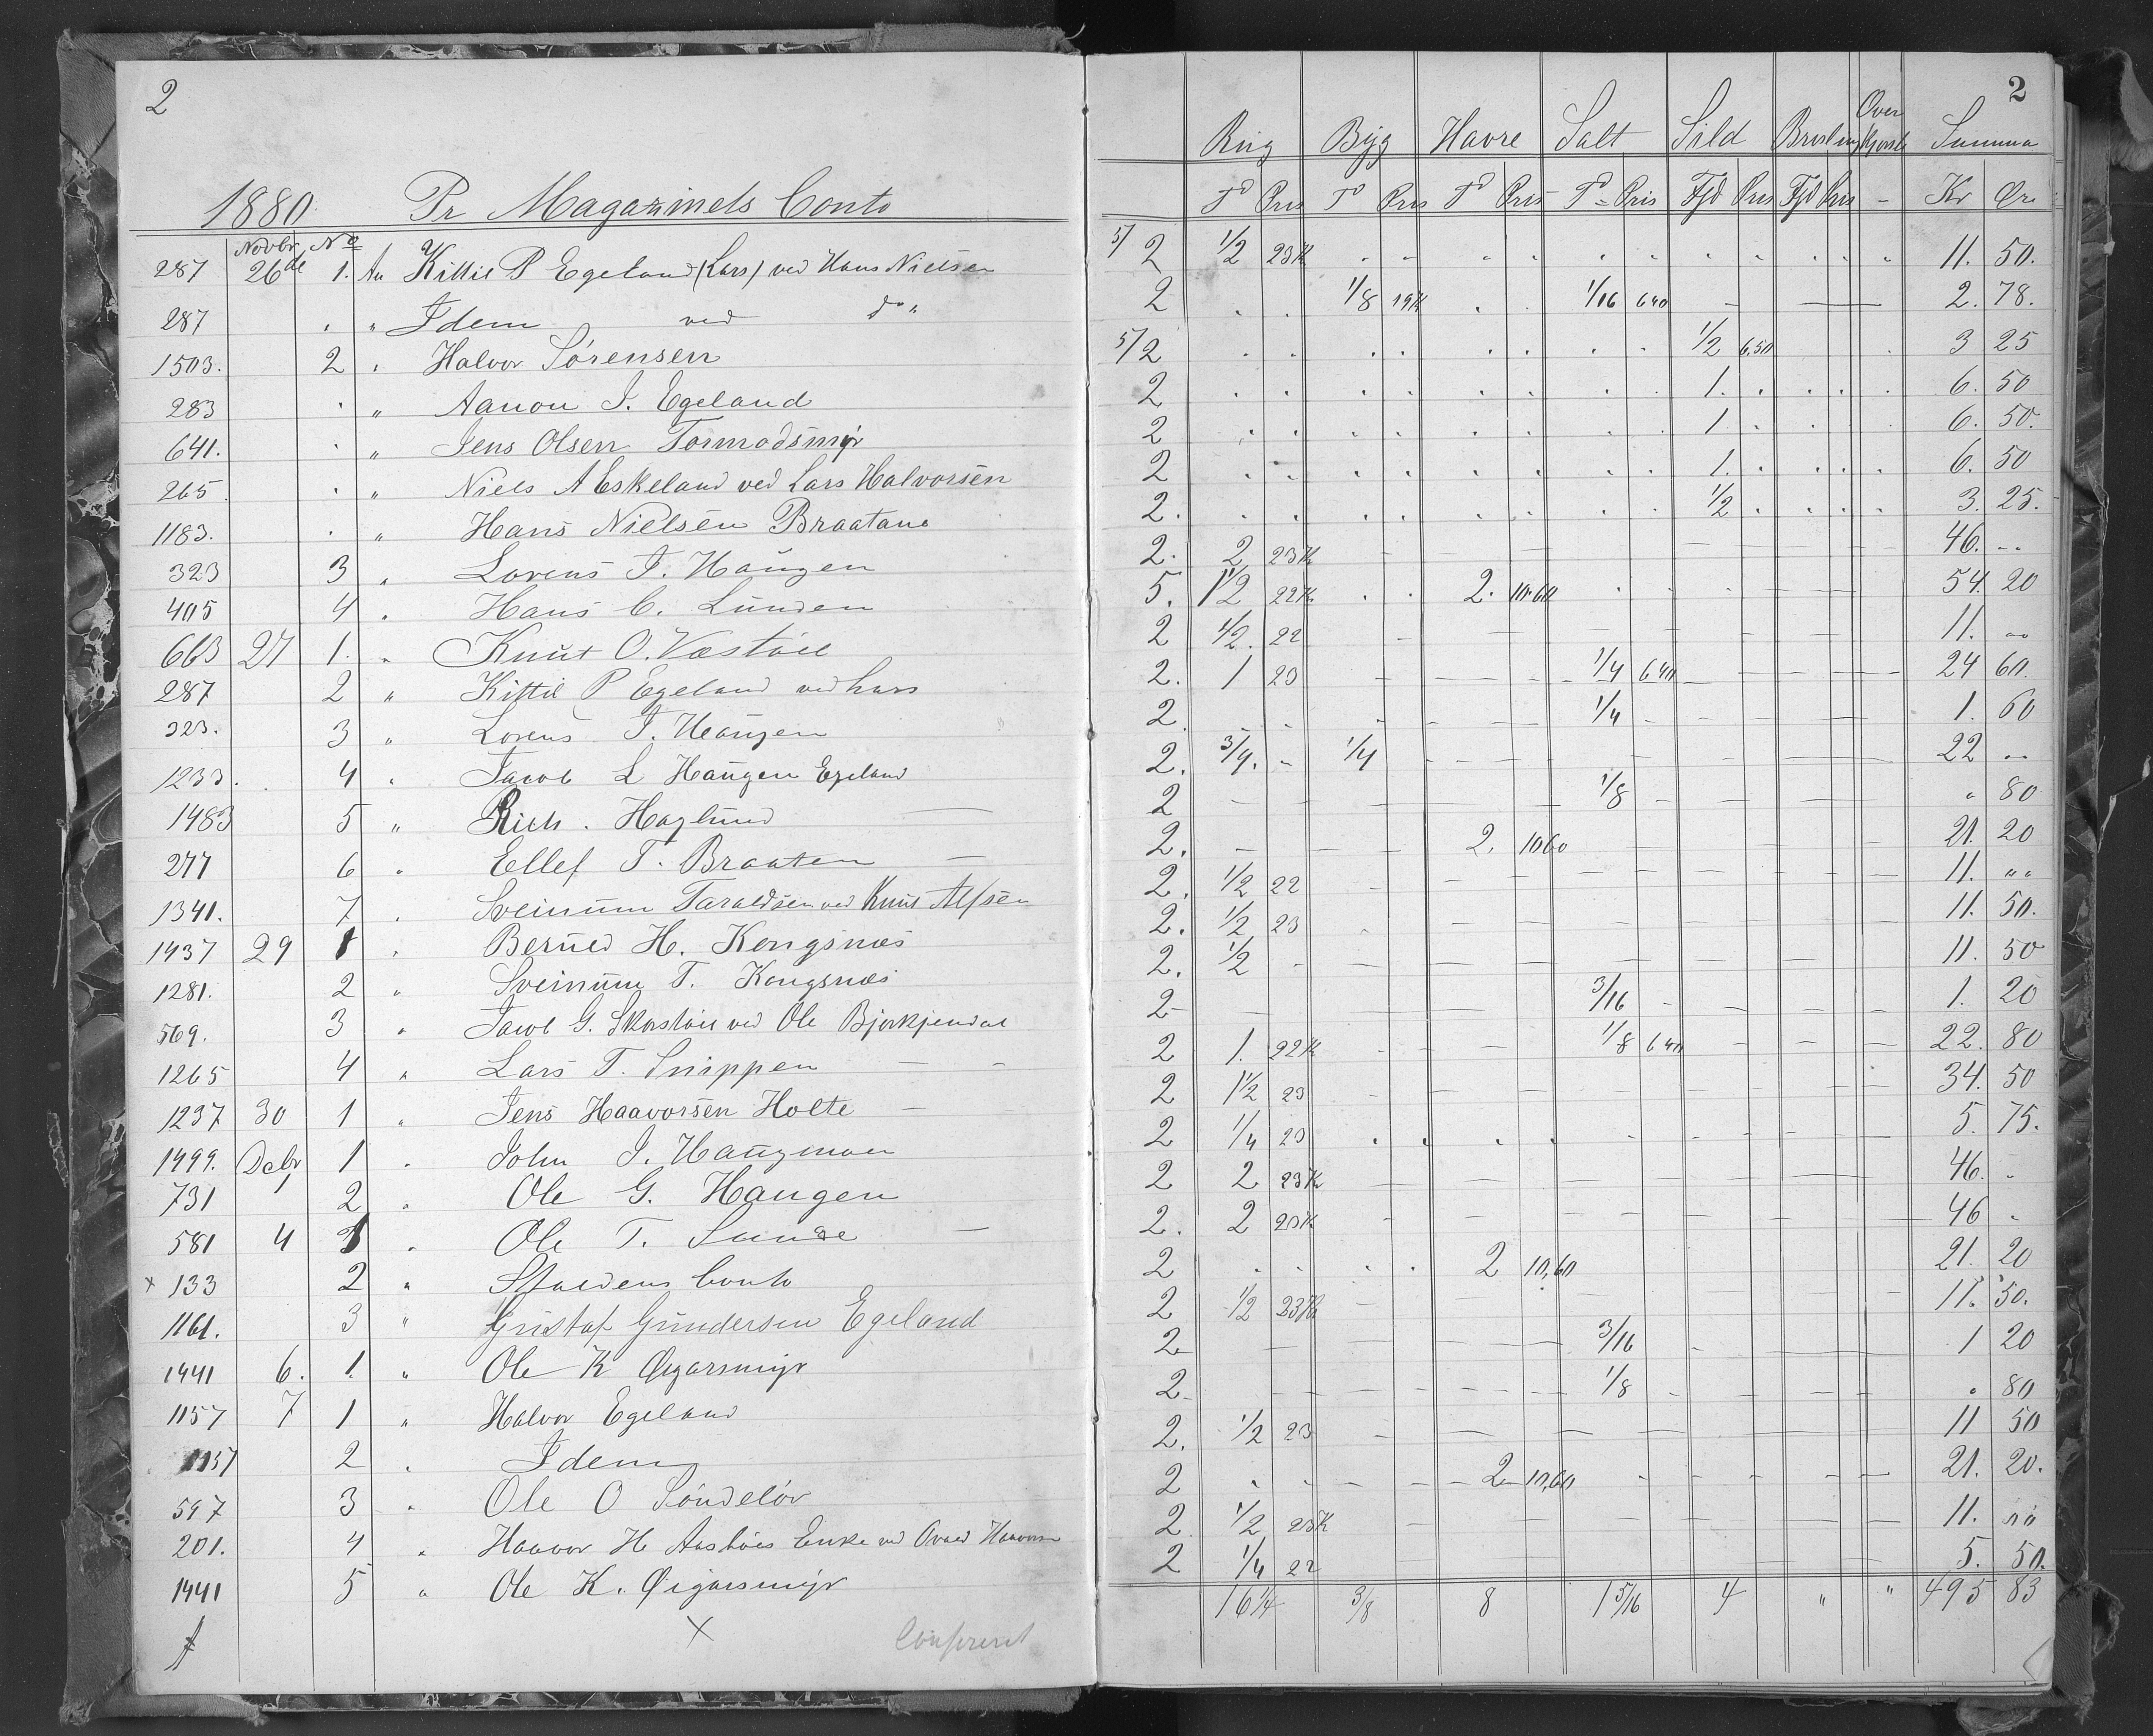 2
1880 Pr Magazinets Conto
Novbr No
287 26de 1. An Kittil P Egeland (Lars) ved Hans Nielsen
287 " Idem ved do "
1503. 2 " Halvor Sørensen
283 " Aanon J. Egeland
641. " Jens Olsen Tormodsmyr
265 " Niels A Eskeland ved Lars Halvorsen
1183. " Hans Nielsen Braatane
323 3 " Lorens J. Haugen
405 4 " Hans C. Lunden
663 27 1. " Knut O. Væstøil
287 2 " Kittil P Egeland ved Lars
323. 3 " Lorens J. Haugen
1233. 4 " Jacob L Haugen Egeland
1483 5 " Rich. Haglund
277 6 " Ellef T. Braaten
1341. 7 " Sveinum Taraldsen ved Knut Alfsen
1437 29 1 " Berned H. Kongsnæs
1281. 2 " Sveinum T. Kongsnæs
569. 3 " Jacob G. Skorstøil ved Ole Bjorkjendal
1265 4 " Lars T. Snippen
1237 30 1 " Jens Haavorsen Holte
1499. Debr 1 " John J. Haugmoen
731 1 2 " Ole G. Haugen
581 4 1 " Ole T. Sunde
x 133 2 " Staldens Conto
1161. 3 " Gustaf Gundersen Egeland
1441 6. 1. " Ole K Øigarsmyr
1157 7 1 " Halvor Egeland
1157 2 " Idem
597 3 " Ole O Søndeløv
201. 4 " Haavor H Aastøls Enke ved Haavorsen
1441 5 " Ole K. Øigarsmyr
x
Confereret
2
Rug Byg Havre Salt Sild Brisling Over Summa
Td Pris Td Pris Td Pris Td Pris Fjd Pris Fjd Pris - Kr Øre
5/2 1/2 23K 11. 50.
2 1/8 19K 1/16 640 2. 78.
5/2 1/2 6.50 3 25
2 1. 6. 50
2 1 6. 50.
2 1. 6. 50
2. 1/2 3. 25.
2. 2 23K 46. "
5. 1 1/2 22K. 2. 10.60 54. 20
2 1/2. 22 11. "
2. 1 23 1/4 640 24 60.
2 1/4 1. 60
2. 3/4. " 1/4 22 "
2 1/8 " 80
2. 2. 1060 21. 20
2. 1/2 22 11. "
2. 1/2 23 11. 50.
2. 1/2 11. 50
2 3/16 1. 20
2 1. 22K 1/8 640 22. 80
2 1 1/2 23 34. 50
2 1/4 23 5. 75.
2 2 23K 46. "
2. 2 23K 46 "
2 2 10,60 21. 20
2 1/2 23K 11. 50.
2 3/16 1 20
2 1/8 " 80
2. 1/2 23 11 50
2 2 10,60 21. 20.
2 1/2 23K 11. "
2 1/4 22 5. 50.
16 1/4 3/8 8 1 5/16 4 " " 495 83